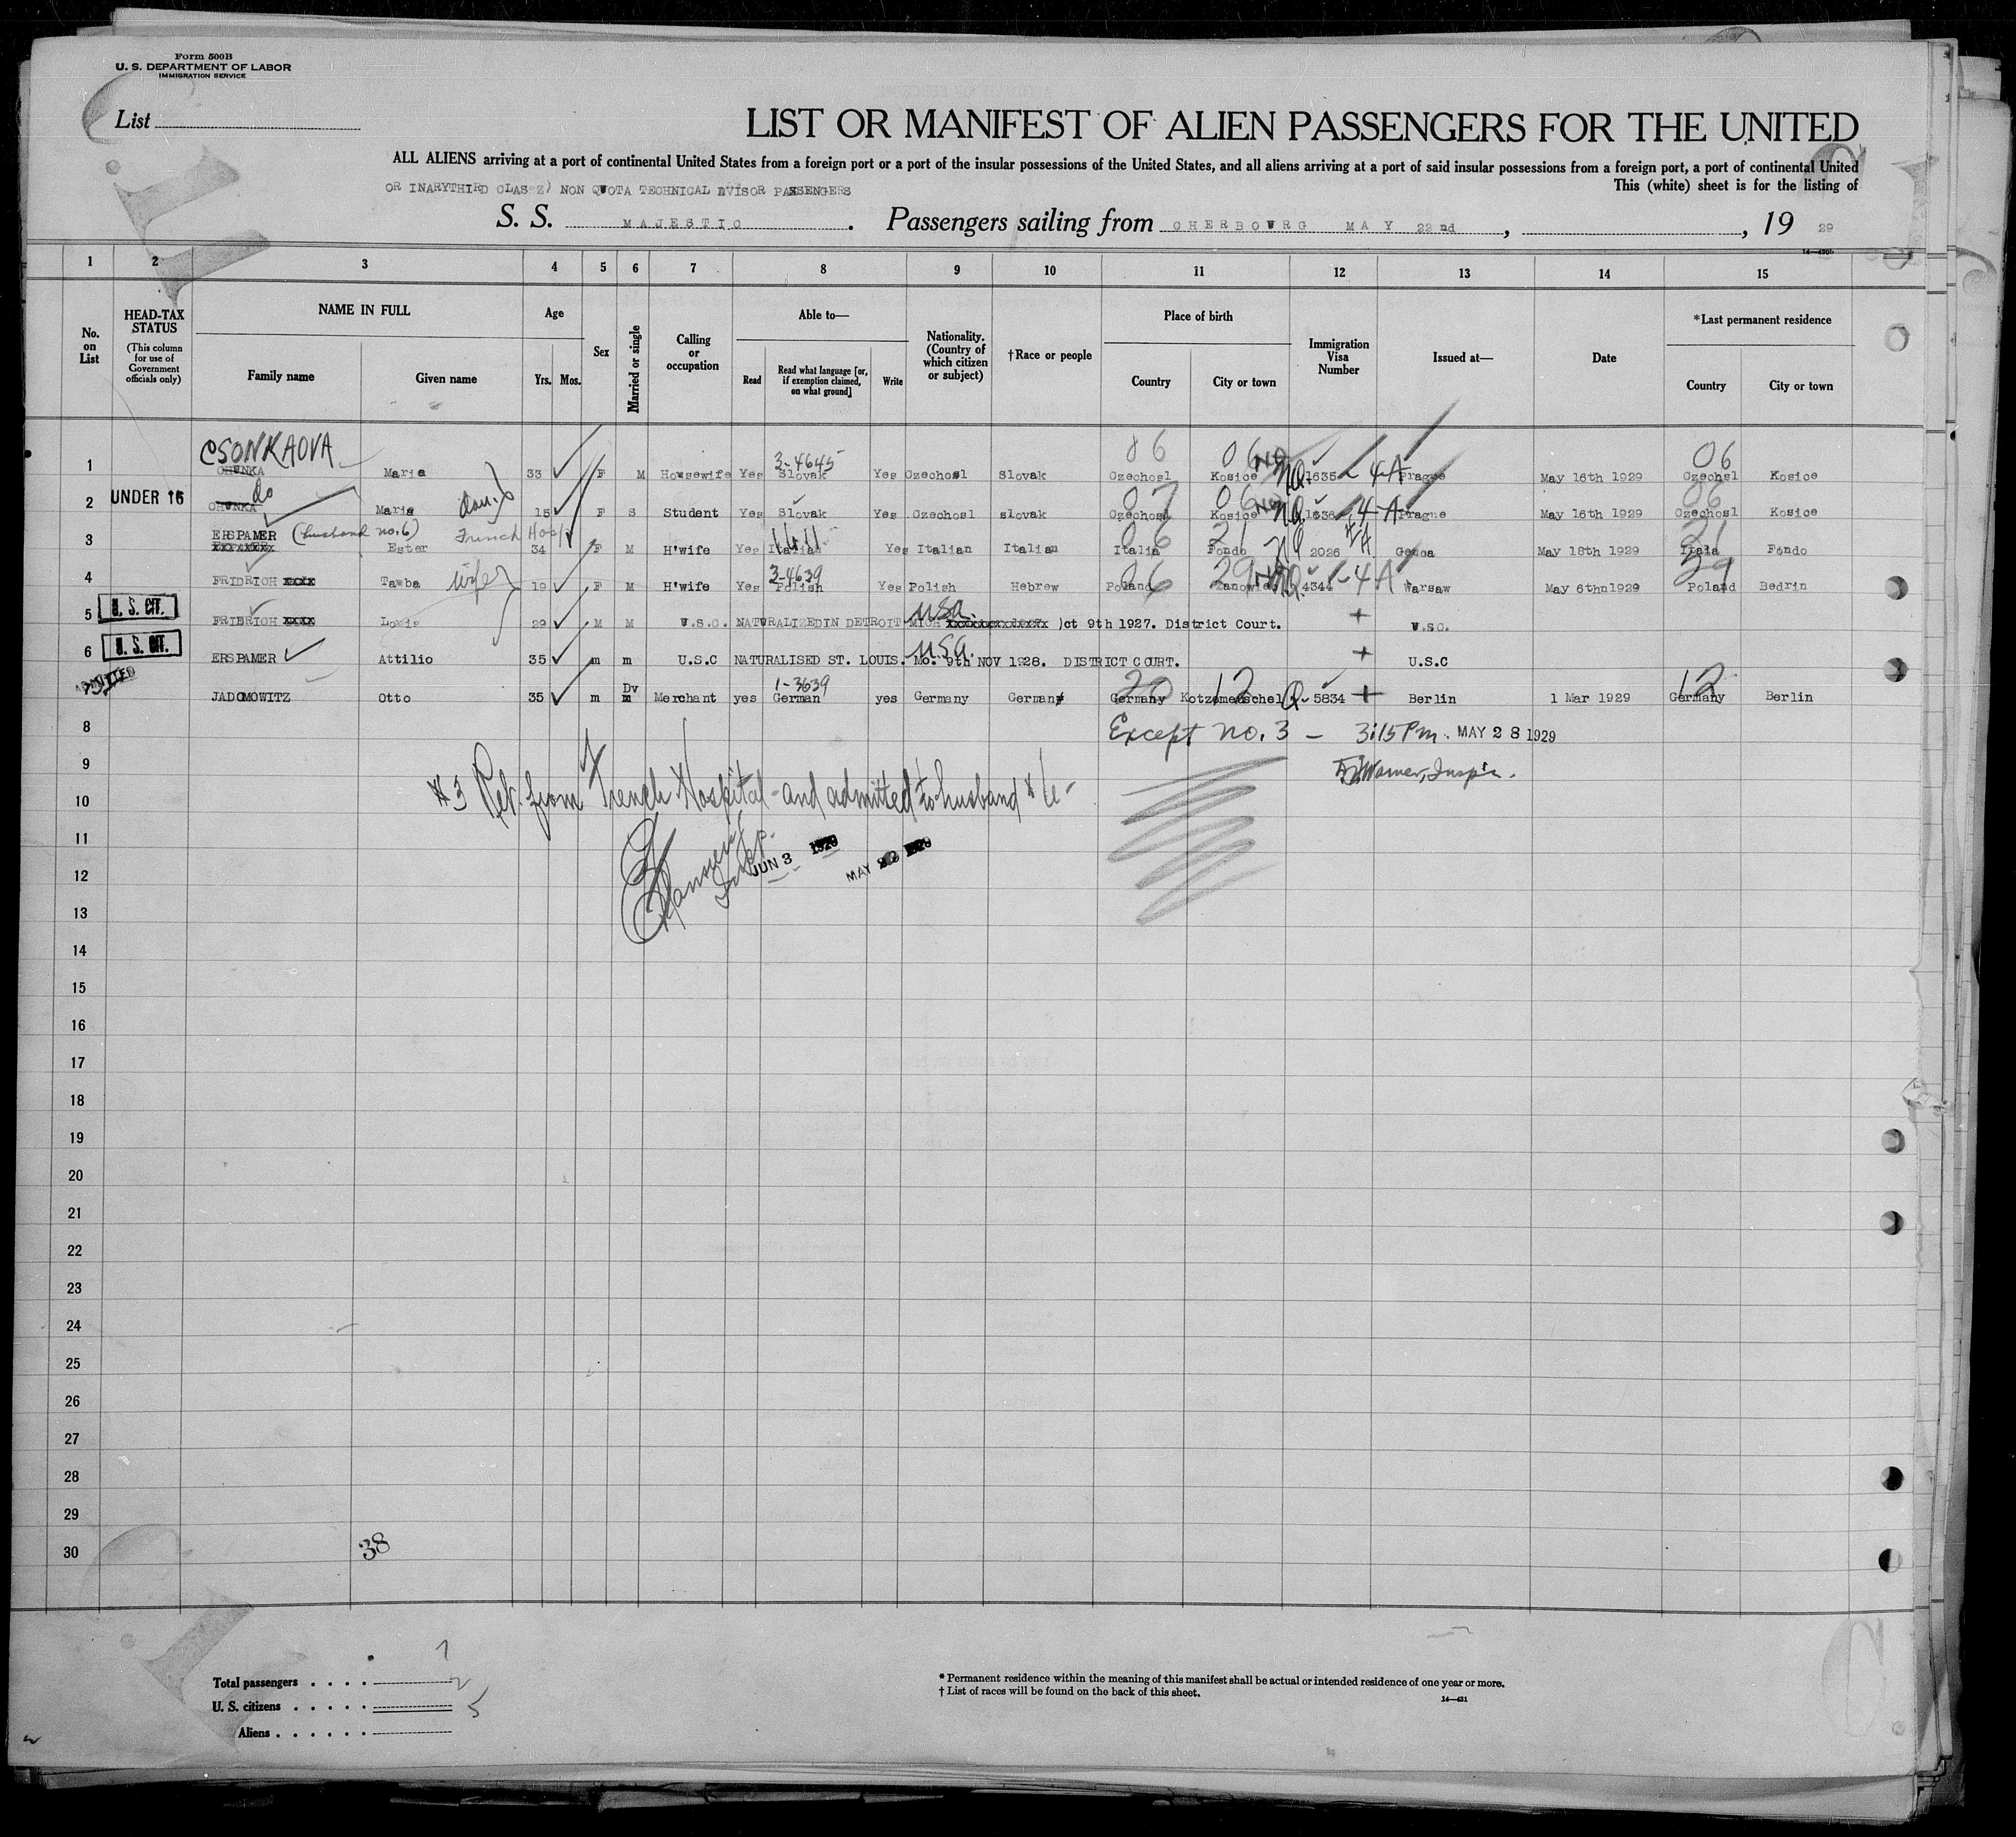 Form 500B
U. S. DEPARTMENT OF LABOR
IMMIGRATION SERVICE
List
LIST OR MANIFEST OF ALIEN PASSENGERS FOR THE UNITED
ALL ALIENS arriving at a port of continental United States from a foreign port or a port of the insular possessions of the United States, and all aliens arriving at a port of said insular possessions from a foreign port, a port of continental United
OR INARYTHIRD CLAS NON QUOTA TECHNICAL DVISOR PASSENGERS This (white) sheet is for the listing of
S. S. MAJESTIC. Passengers sailing from CHERBOURG MAY 22nd, , 19 29
14—430b
1 2 3 4 5 6 7 8 9 10 11 12 13 14 15
No. on List
HEAD-TAX STATUS
(This column for use of Government officials only)
NAME IN FULL
Family name Given name
Age
Yrs. Mos.
Sex
Married or single
Calling or occupation
Able to—
Read
Read what language [or, if exemption claimed, on what ground]
Write
Nationality. (Country of which citizen or subject)
†Race or people
Place of birth
Country City or town
Immigration Visa Number
Issued at—
Date
*Last permanent residence
Country City or town
CSONKAOVA 3-4645 06 06 06
1 Maria 33 F M Housewife Yes Slovak Yes Czechosl Slovak Czechosl Kosice NQ 1635 4-A Prague May 16th 1929 Czechsl Kosice
do 07 06 06
2 UNDER 16 Maria dau. 15 F S Student Yes Slovak Yes Czechosl slovak Czechosl Kosice NQ 1636 4-A Prague May 16th 1929 Czechosl Kosice
ERSPAMER (husband no. 6) French Hosp 06 21 21
3 Ester 34 F M H'wife Yes Italian Yes Italian Italian Italia Fondo NQ 2026 4A Genoa May 18th 1929 Itala Fondo
3-4639 06 29 29
4 FRIDRICH xxxx Tauba wife 19 F M H'wife Yes Polish Yes Polish Hebrew Poland 4344 4A Warsaw May 6thn1929 Poland Bedrin
USA.
5 U. S. CIT. FRIDRICH xxxx Louis 29 M M U.S.C. NATURALIZEDIN DETROIT MICH ct 9th 1927. District Court. + U.SC.
USA.
6 U. S. CIT. ERSPAMER Attilio 35 m m U.S.C NATURALISED ST. LOUIS. Mo. 9th NOV 1928. DISTRICT COURT. + U.S.C
ADMITTED 1-3639 20 12 12
JADOMOWITZ Otto 35 m Dv Merchant yes German yes Germany German Germany Q 5834 + Berlin 1 Mar 1929 Germany Berlin
8 Except no. 3 — 3:15 Pm. MAY 28 1929
9 Warner, Inspr.
10 #3 Rel. from French Hospital - and admitted to husband #6 -
11 Insp. JUN 3 1929
12 MAY 1929
13
14
15
16
17
18
19
20
21
22
23
24
25
26
27
28
29
30 38
Total passengers . . . . 7
U. S. citizens . . . . . 2
Aliens . . . . . . 5
* Permanent residence within the meaning of this manifest shall be actual or intended residence of one year or more.
† List of races will be found on the back of this sheet.
14—431